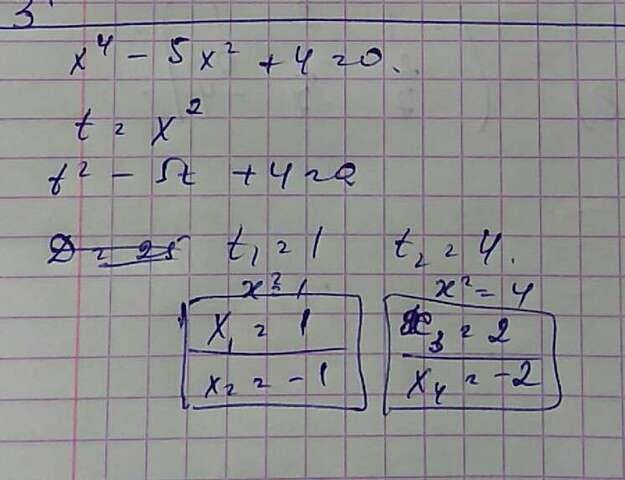 3
x⁴ - 5x² + 4 = 0.
t = x²
t² - 5t + 4 = 0
D = 25 t₁ = 1 t₂ = 4.
x² = 1 x² = 4
x₁ = 1 x₃ = 2
x₂ = -1 x₄ = -2